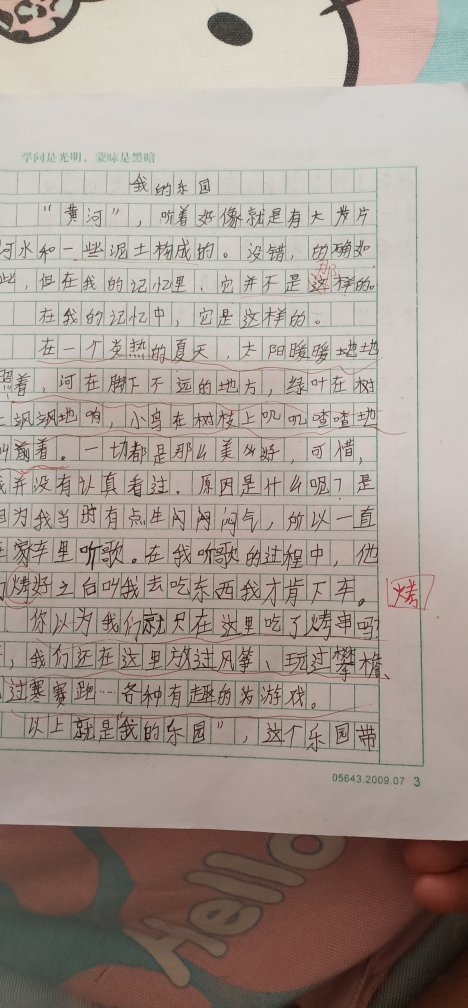 学问是光明，蒙昧是黑暗
我的乐园
“黄河”，听着好像就是有大片
河水和一些泥土构成的。没错，的确如
些，但在我的记忆里，它并不是这样的。
那
在我的记忆中，它是这样的。
在一个炎热的夏天，太阳暖暖地地
照着，河在脚下不远的地方，绿叶在树
上飒飒地响，小鸟在树枝上叽叽喳喳地
叫着。一切都是那么美好，可惜，
我并没有认真看过。原因是什么呢？是
因为我当时有点生闷闷闷气，所以一直
在家车里听歌。在我听歌的过程中，他
们烤好之后叫我去吃东西我才肯下车。
烤
你以为我们就只在这里吃了烤串吗？
，我们还在这里放过风筝、玩过攀檐、
过赛跑……各种有趣的游戏。
以上就是“我的乐园”，这个乐园带
05643.2009.07 3
Hello